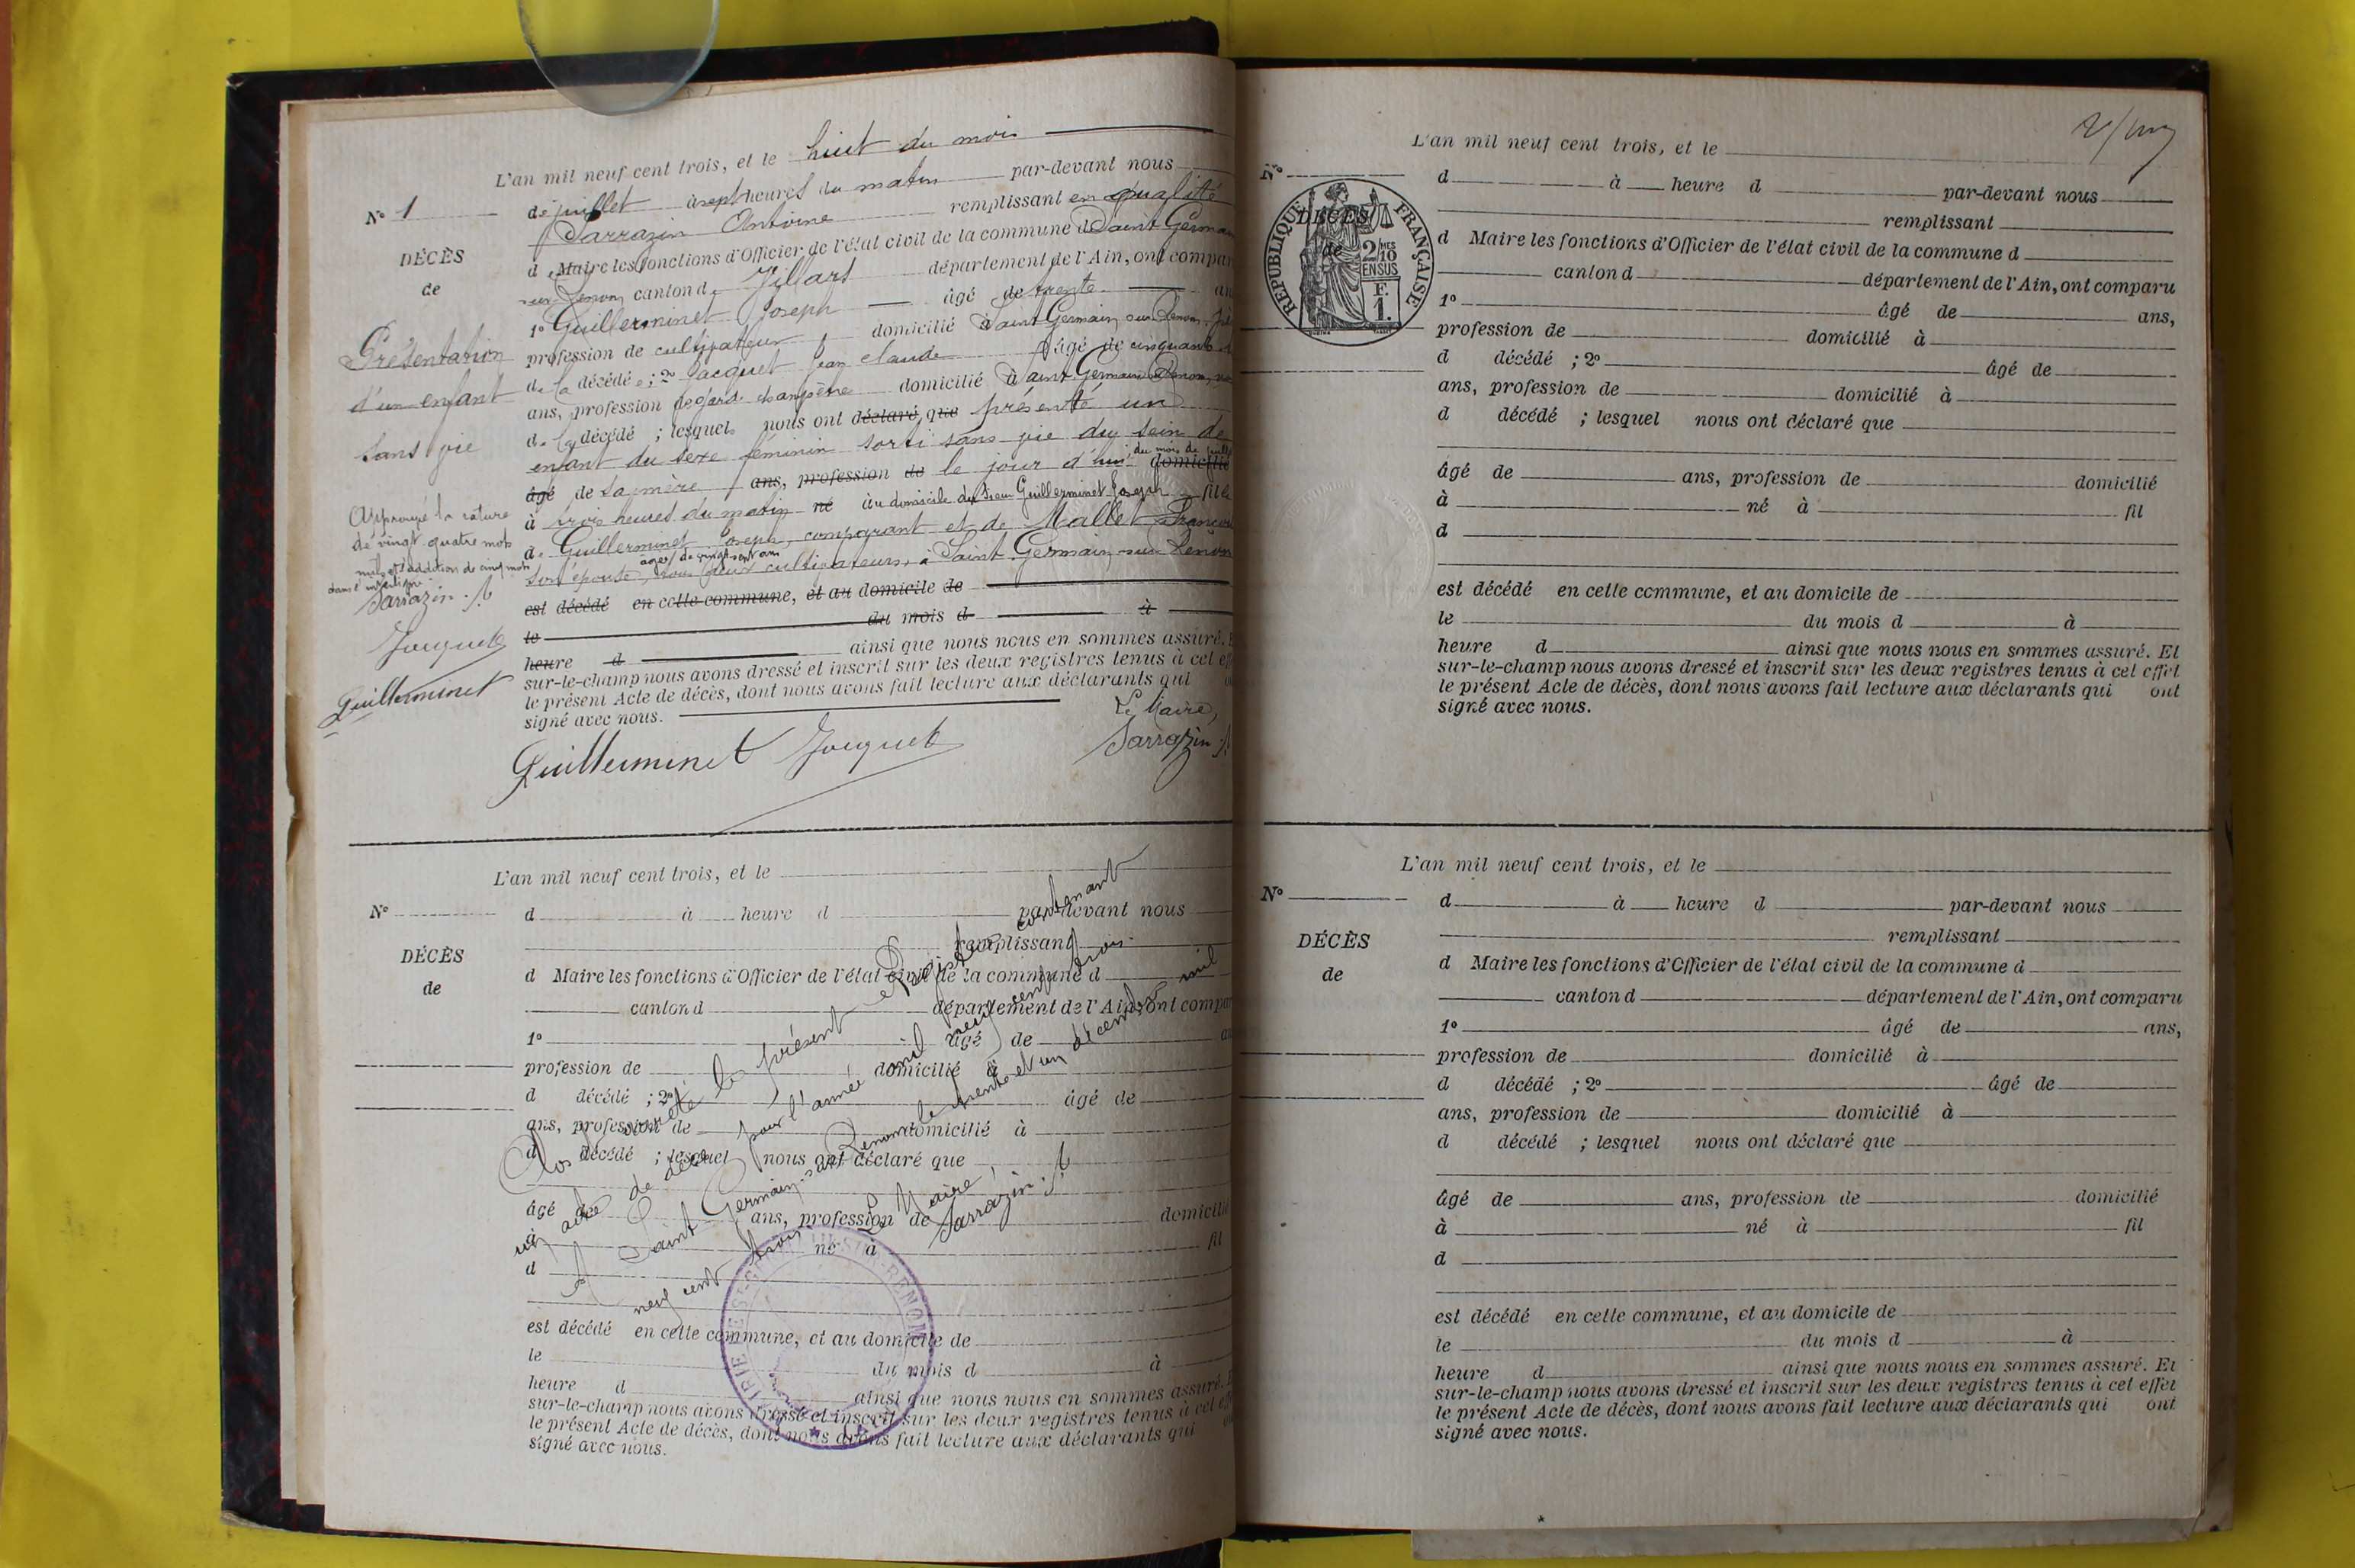 L'an mil neuf cent trois, et le huit du mois
N° 1
de juillet à sept heures du matin par-devant nous
Sarrazin Antoine remplissant en qualité
DÉCÈS
d e Maire les fonctions d'Officier de l'état civil de la commune de Saint Germain
de
sur Renon canton de Villars département de l'Ain, ont comparu
1° Guillerminet Joseph âgé de trente ans
Présentation
profession de cultivateur domicilié à Saint Germain sur Renon, père
d'un enfant
de la décédée ; 2° Jacquet Jean Claude âgé de cinquante
sans vie
ans, profession de garde champêtre domicilié à Saint Germain s Renon
de la décédé ; lesquels nous ont déclaré, que présenté un
enfant du sexe féminin sorti sans vie du sein de
âgé de sa mère ans, profession de le jour d'hui du mois de juillet domicilié
à trois heures du matin né au domicile du sieur Guillerminet Joseph fille
Approuvé la rature
de vingt quatre mots
nuls et l'addition de cinq mots
dans l'interligne
Sarrazin. A
de Guillerminet Joseph, comparant et de Mallet Françoise
âgée de vingt sept ans
son épouse, tous deux cultivateurs, à Saint Germain sur Renon
est décédé en cette commune, et au domicile de
Jacquet
le du mois d à
heure d ainsi que nous nous en sommes assuré. E
Guillerminet
sur-le-champ nous avons dressé et inscrit sur les deux registres tenus à cet eff
le présent Acte de décès, dont nous avons fait lecture aux déclarants qui o
signé avec nous.
Le Maire,
Guillerminet Jacquet Sarrazin A
L'an mil neuf cent trois, et le
N°
d à heure d par-devant nous
remplissant
DÉCÈS
d Maire les fonctions d'Officier de l'état civil de la commune d
de
canton d département de l'Ain, ont compar
1° âgé de an
profession de domicilié à
d décédé ; 2° âgé de
ans, profession de domicilié à
d décédé ; lesquel nous ont déclaré que
âgé de ans, profession de domicilié
à né à fil
d
est décédé en cette commune, et au domicile de
le du mois d à
heure d ainsi que nous nous en sommes assuré. E
sur-le-champ nous avons dressé et inscrit sur les deux registres tenus à cet eff
le présent Acte de décès, dont nous avons fait lecture aux déclarants qui o
signé avec nous.
Clos et arrêté le présent Registre contenant
un acte de décès pour l'année mil neuf cent trois.
A Saint Germain-sur Renon le trente et un décembre mil
neuf cent trois
Le Maire,
Sarrazin. A
L'an mil neuf cent trois, et le
N°
d à heure d par-devant nous
remplissant
RÉPUBLIQUE FRANÇAISE
2/10 MES EN SUS
F. 1.
DÉCÈS
d Maire les fonctions d'Officier de l'état civil de la commune d
de
canton d département de l'Ain, ont comparu
1° âgé de ans,
profession de domicilié à
d décédé ; 2° âgé de
ans, profession de domicilié à
d décédé ; lesquel nous ont déclaré que
âgé de ans, profession de domicilié
à né à fil
d
est décédé en cette commune, et au domicile de
le du mois d à
heure d ainsi que nous nous en sommes assuré. Et
sur-le-champ nous avons dressé et inscrit sur les deux registres tenus à cet effet
le présent Acte de décès, dont nous avons fait lecture aux déclarants qui ont
signé avec nous.
L'an mil neuf cent trois, et le
N°
d à heure d par-devant nous
remplissant
DÉCÈS
d Maire les fonctions d'Officier de l'état civil de la commune d
de
canton d département de l'Ain, ont comparu
1° âgé de ans,
profession de domicilié à
d décédé ; 2° âgé de
ans, profession de domicilié à
d décédé ; lesquel nous ont déclaré que
âgé de ans, profession de domicilié
à né à fil
d
est décédé en cette commune, et au domicile de
le du mois d à
heure d ainsi que nous nous en sommes assuré. Et
sur-le-champ nous avons dressé et inscrit sur les deux registres tenus à cet effet
le présent Acte de décès, dont nous avons fait lecture aux déclarants qui ont
signé avec nous.